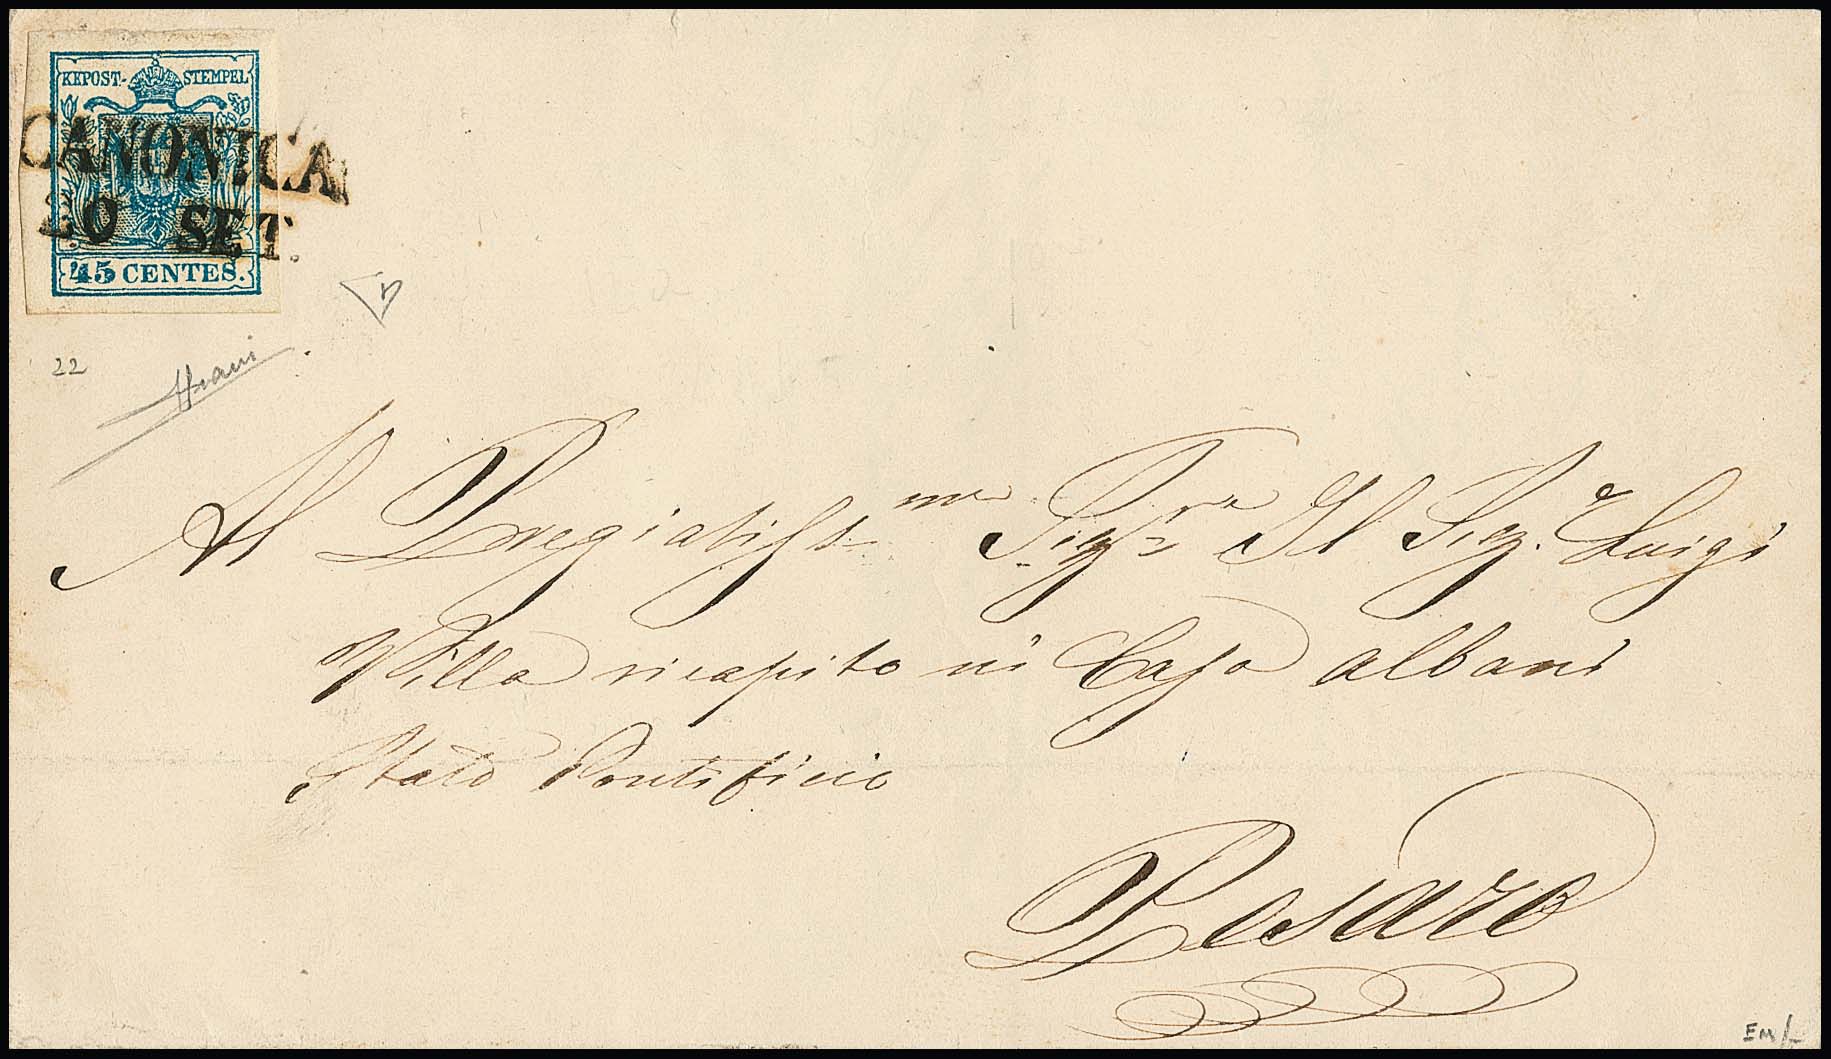 KKPOST-STEMPEL
CANONICA
20 SET.
45 CENTES.
22
Al Pregiatiss.mo Sig.re Il Sig. Luigi
Villa ricapito in Casa Albani
Stato Pontificio
Pesaro
EM